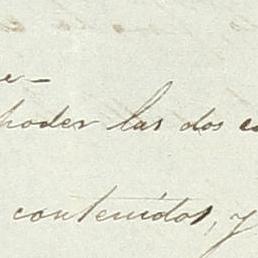 poder las dos
contenidos, y